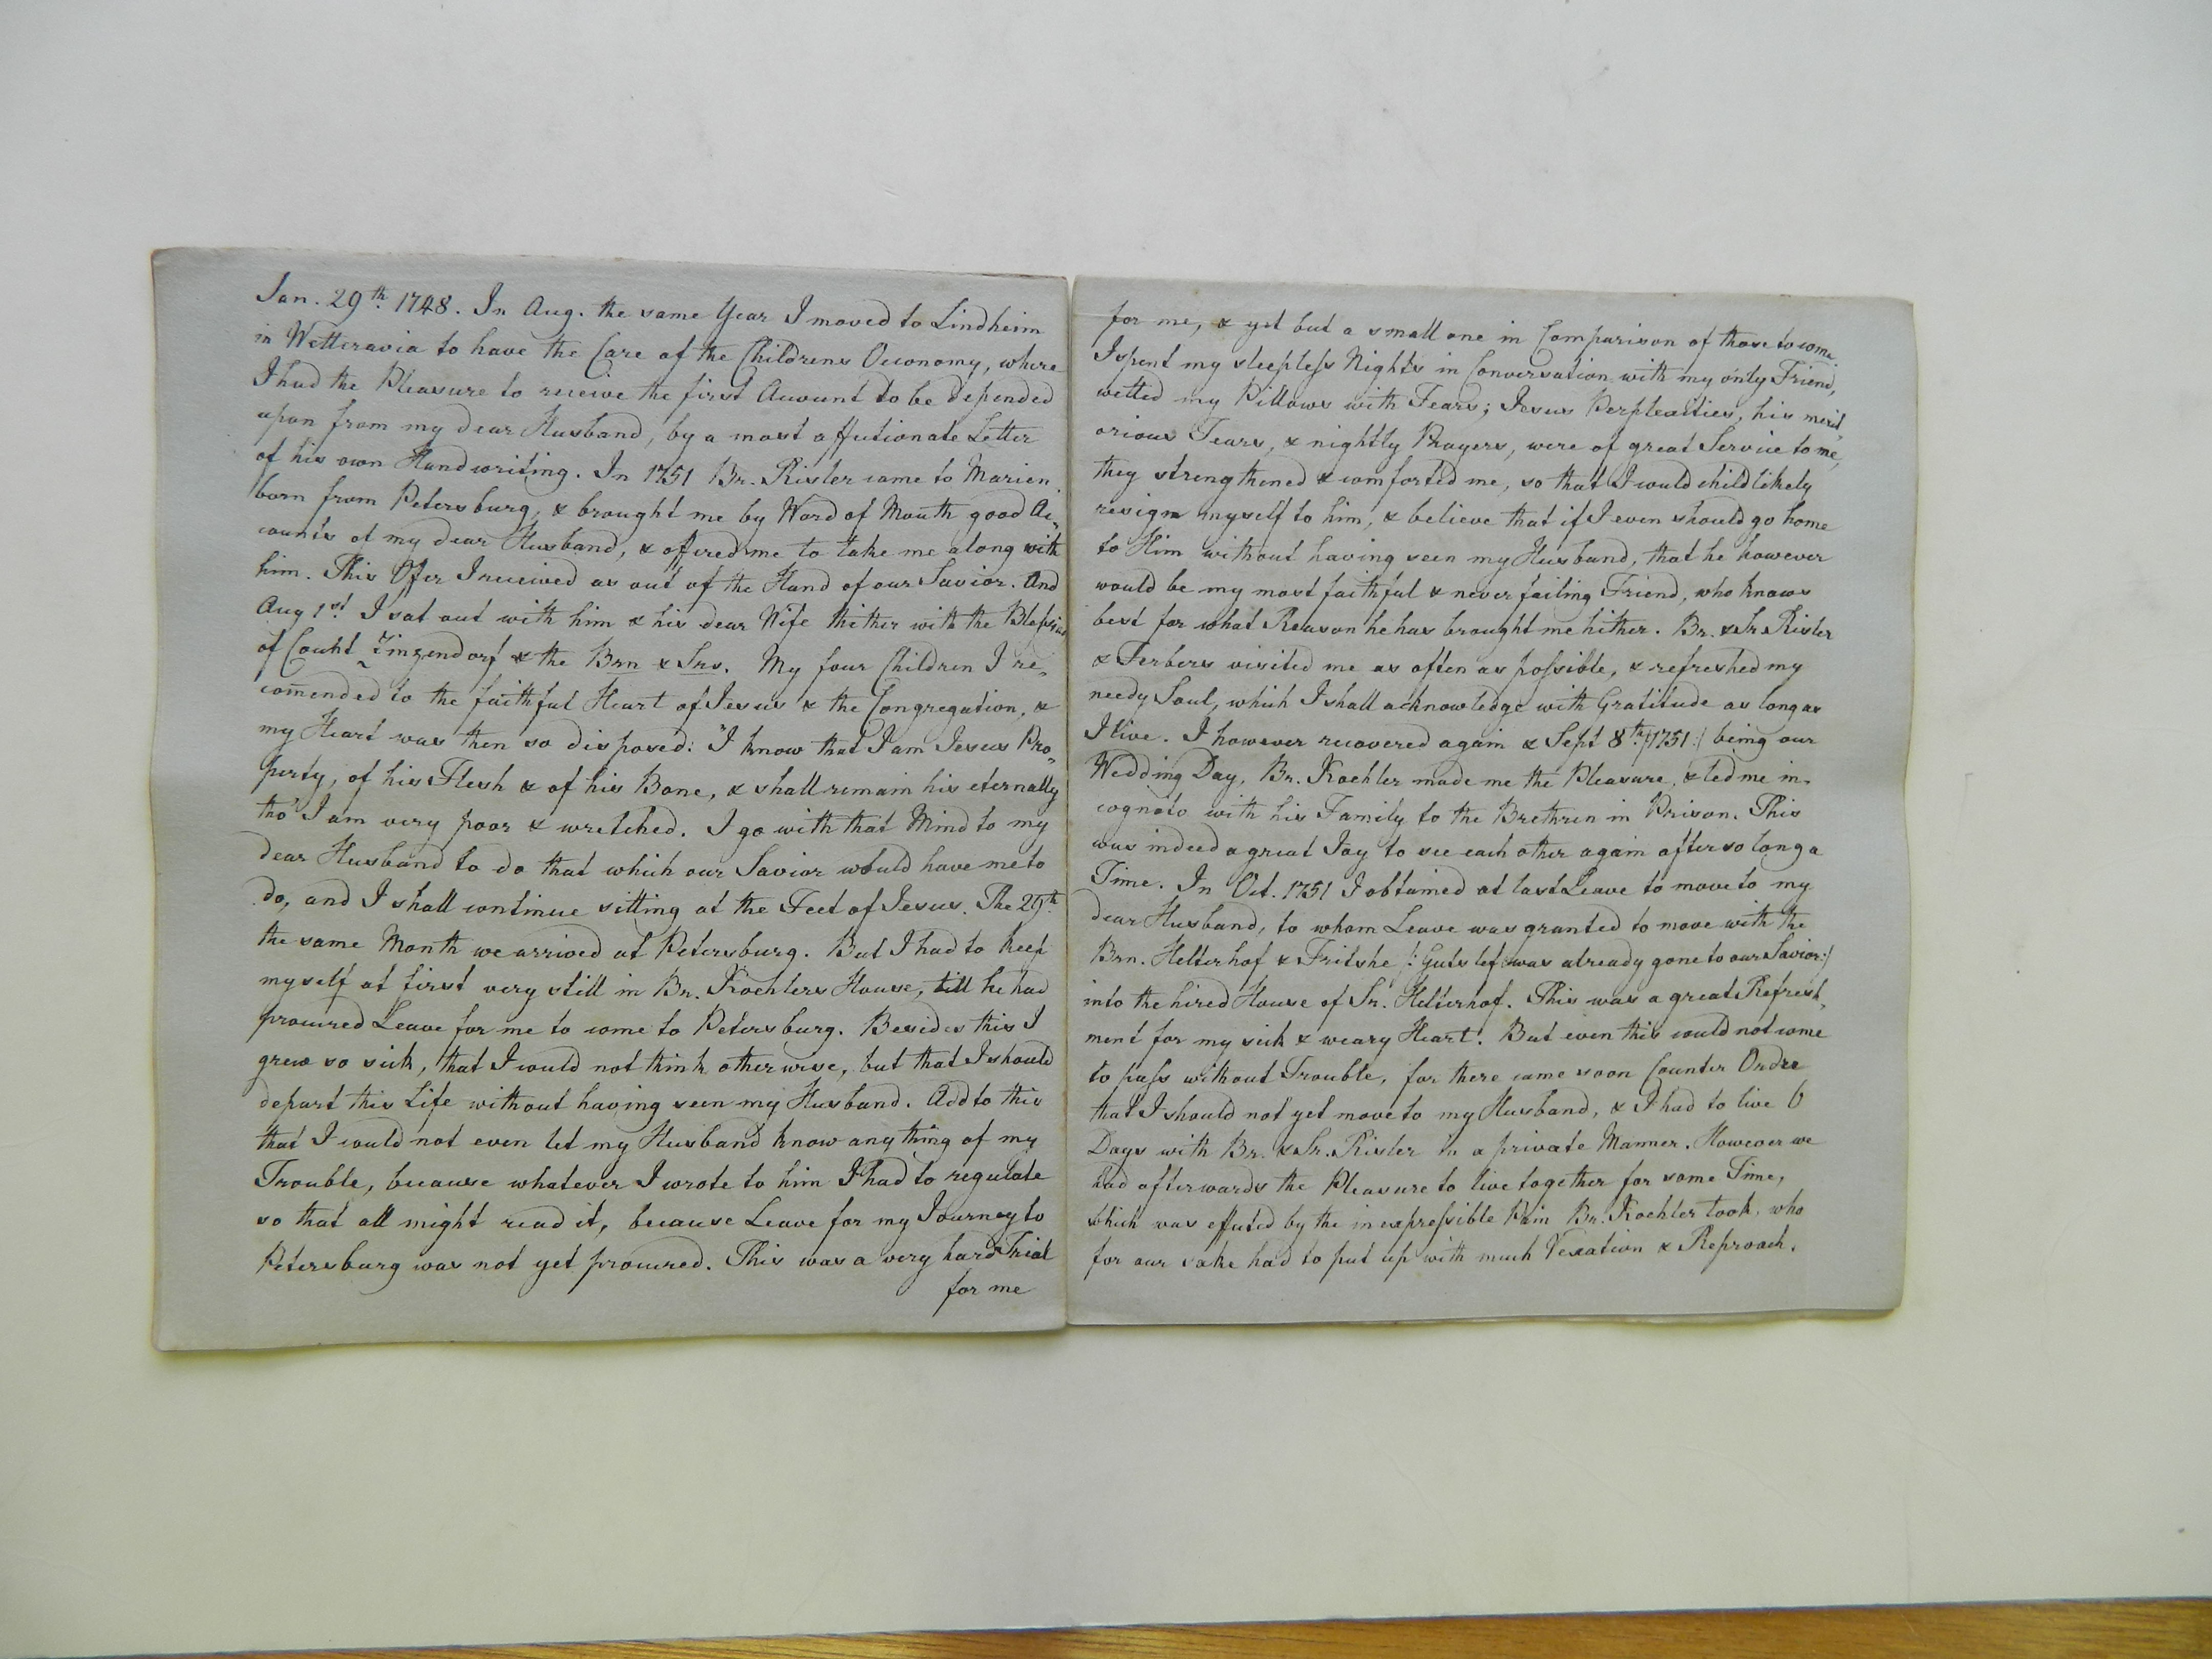 Jan. 29th. 1748. In Aug. the same Year I moved to Lindheim
in Wetteravia to have the Care of the Childrens Oeconomy, where
I had the Pleasure to receive the first Account to be depended
upon from my dear Husband, by a most affectionate Letter
of his own Handwriting. In 1751 Br. Risler came to Marien
born from Petersburg, & brought me by Word of Mouth good Ac„
counts of my dear Husband, & offered me to take me along with
him. This Offer I received as out of the Hand of our Savior. And
Aug 1st. I sat out with him & his dear Wife thither with the Blessing
of Count Zinzendorf & the Brn & Srs. My four Children I re„
com̄ended to the faithful Heart of Jesus & the Congregation, &
my Heart was then so disposed: "I know that I am Jesus Pro„
perty, of his Flesh & of his Bone, & shall remain his eternally
tho' I am very poor & wretched. I go with that Mind to my
dear Husband to do that which our Savior would have me to
do, and I shall continue sitting at the Feet of Jesus. The 29th.
the same Month we arrived at Petersburg. But I had to keep
myself at first very still in Br. Koehlers House, till he had
procured Leave for me to come to Petersburg. Besides this I
grew so sick, that I could not think otherwise, but that I should
depart this Life without having seen my Husband. Add to this
that I could not even let my Husband know any thing of my
Trouble, because whatever I wrote to him I had to regulate
so that all might read it, because Leave for my Journey to
Petersburg was not yet procured. This was a very hard Trial
for me
for me, & yet but a small one in Comparison of those to come.
I spent my sleepless Nights in Conversation with my only Friend,
wetted my Pillows with Tears; Jesus Perplexities, his merit„
orious Tears, & nightly Prayers, were of great Service to me,
they strengthened & comforted me, so that I could childlikely
resign myself to him, & believe that if I even should go home
to Him without having seen my Husband, that he however
would be my most faithful & never failing Friend, who knows
best for what Reason he has brought me hither. Br. & Sr. Risler
& Ferbers visited me as often as possible, & refreshed my
needy Soul, which I shall acknowledge with Gratitude as long as
I live. I however recovered again & Sept 8th. /:1751:/ being our
Wedding Day, Br. Koehler made me the Pleasure, & led me in„
cognoto with his Family to the Brethren in Prison. This
was indeed a great Joy to see each other again after so long a
Time. In Oct. 1751 I obtained at last Leave to move to my
dear Husband, to whom Leave was granted to move with the
Brn. Helterhof & Fritshe /: Gutslef was already gone to our Savior:/
into the hired House of Sr. Helterhof. This was a great Refresh„
ment for my sick & weary Heart. But even this could not come
to pass without Trouble, for there came soon Counter Ordre
that I should not yet move to my Husband, & I had to live 6
Days with Br. & Sr. Risler in a private Manner. However we
had afterwards the Pleasure to live together for some Time,
which was effected by the inexpressible Pain Br. Koehler took, who
for our sake had to put up with much Vexation & Reproach.